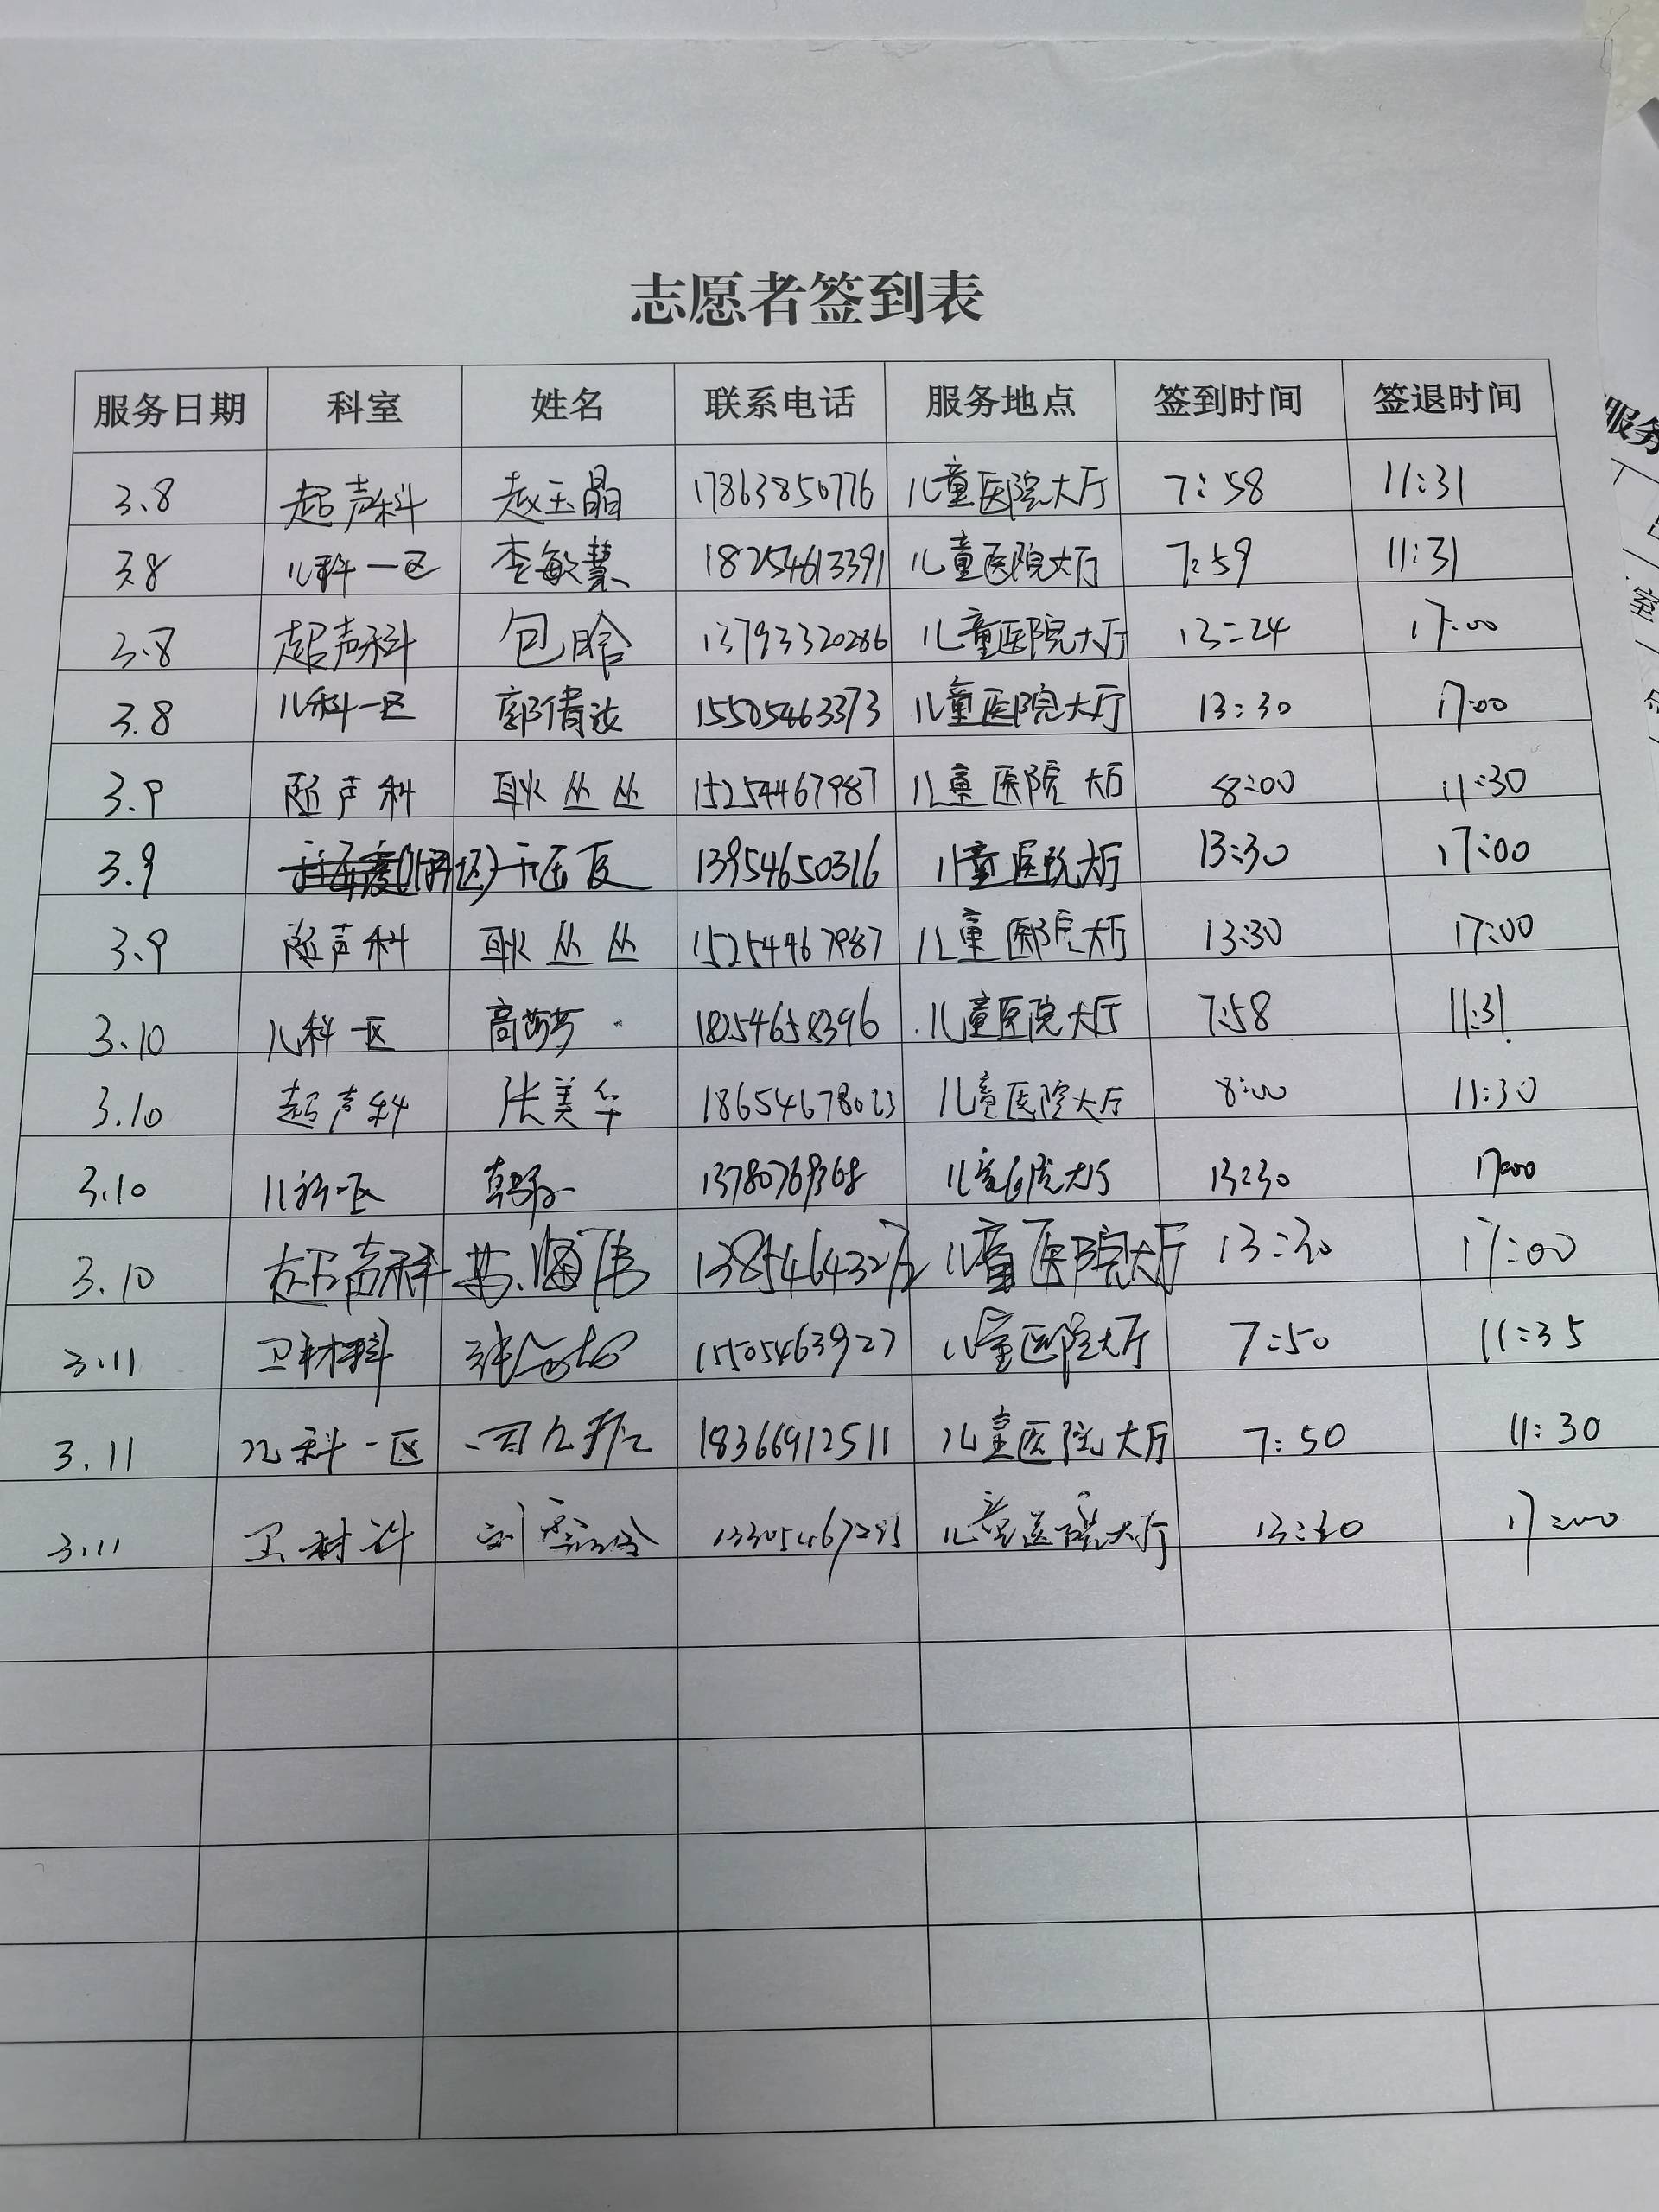 志愿者签到表
服务日期 科室 姓名 联系电话 服务地点 签到时间 签退时间
3.8 超声科 赵玉晶 17863850776 儿童医院大厅 7:58 11:31
3.8 儿科一区 李敏慧 18254613391 儿童医院大厅 7:59 11:31
3.8 超声科 包晗 13793320286 儿童医院大厅 13:24 17:00
3.8 儿科一区 郭倩 15505463373 儿童医院大厅 13:30 17:00
3.9 超声科 耿丛丛 15254467987 儿童医院大厅 8:00 11:30
3.9 13954650316 儿童医院大厅 13:30 17:00
3.9 超声科 耿丛丛 15254467987 儿童医院大厅 13:30 17:00
3.10 儿科一区 高 18254658396 儿童医院大厅 7:58 11:31
3.10 超声科 张美华 18654678023 儿童医院大厅 8:00 11:30
3.10 儿科一区 儿童医院大厅 13:30 17:00
3.10 超声科 苏海伟 儿童医院大厅 13:30 17:00
3.11 卫材科 15505463927 儿童医院大厅 7:50 11:35
3.11 儿科一区 18366912511 儿童医院大厅 7:50 11:30
3.11 卫材科 刘雪 儿童医院大厅 13:30 17:00
服务
室